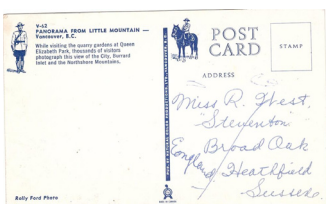 V-62
PANORAMA FROM LITTLE MOUNTAIN —
Vancouver, B.C.
While visiting the quarry gardens at Queen
Elizabeth Park, thousands of visitors
photograph this view of the City, Burrard
Inlet and the Northshore Mountains.
Rolly Ford Photo
POST
CARD
STAMP
ADDRESS
Miss R. West.
"Steventon"
Broad Oak
England Heathfield
Sussex